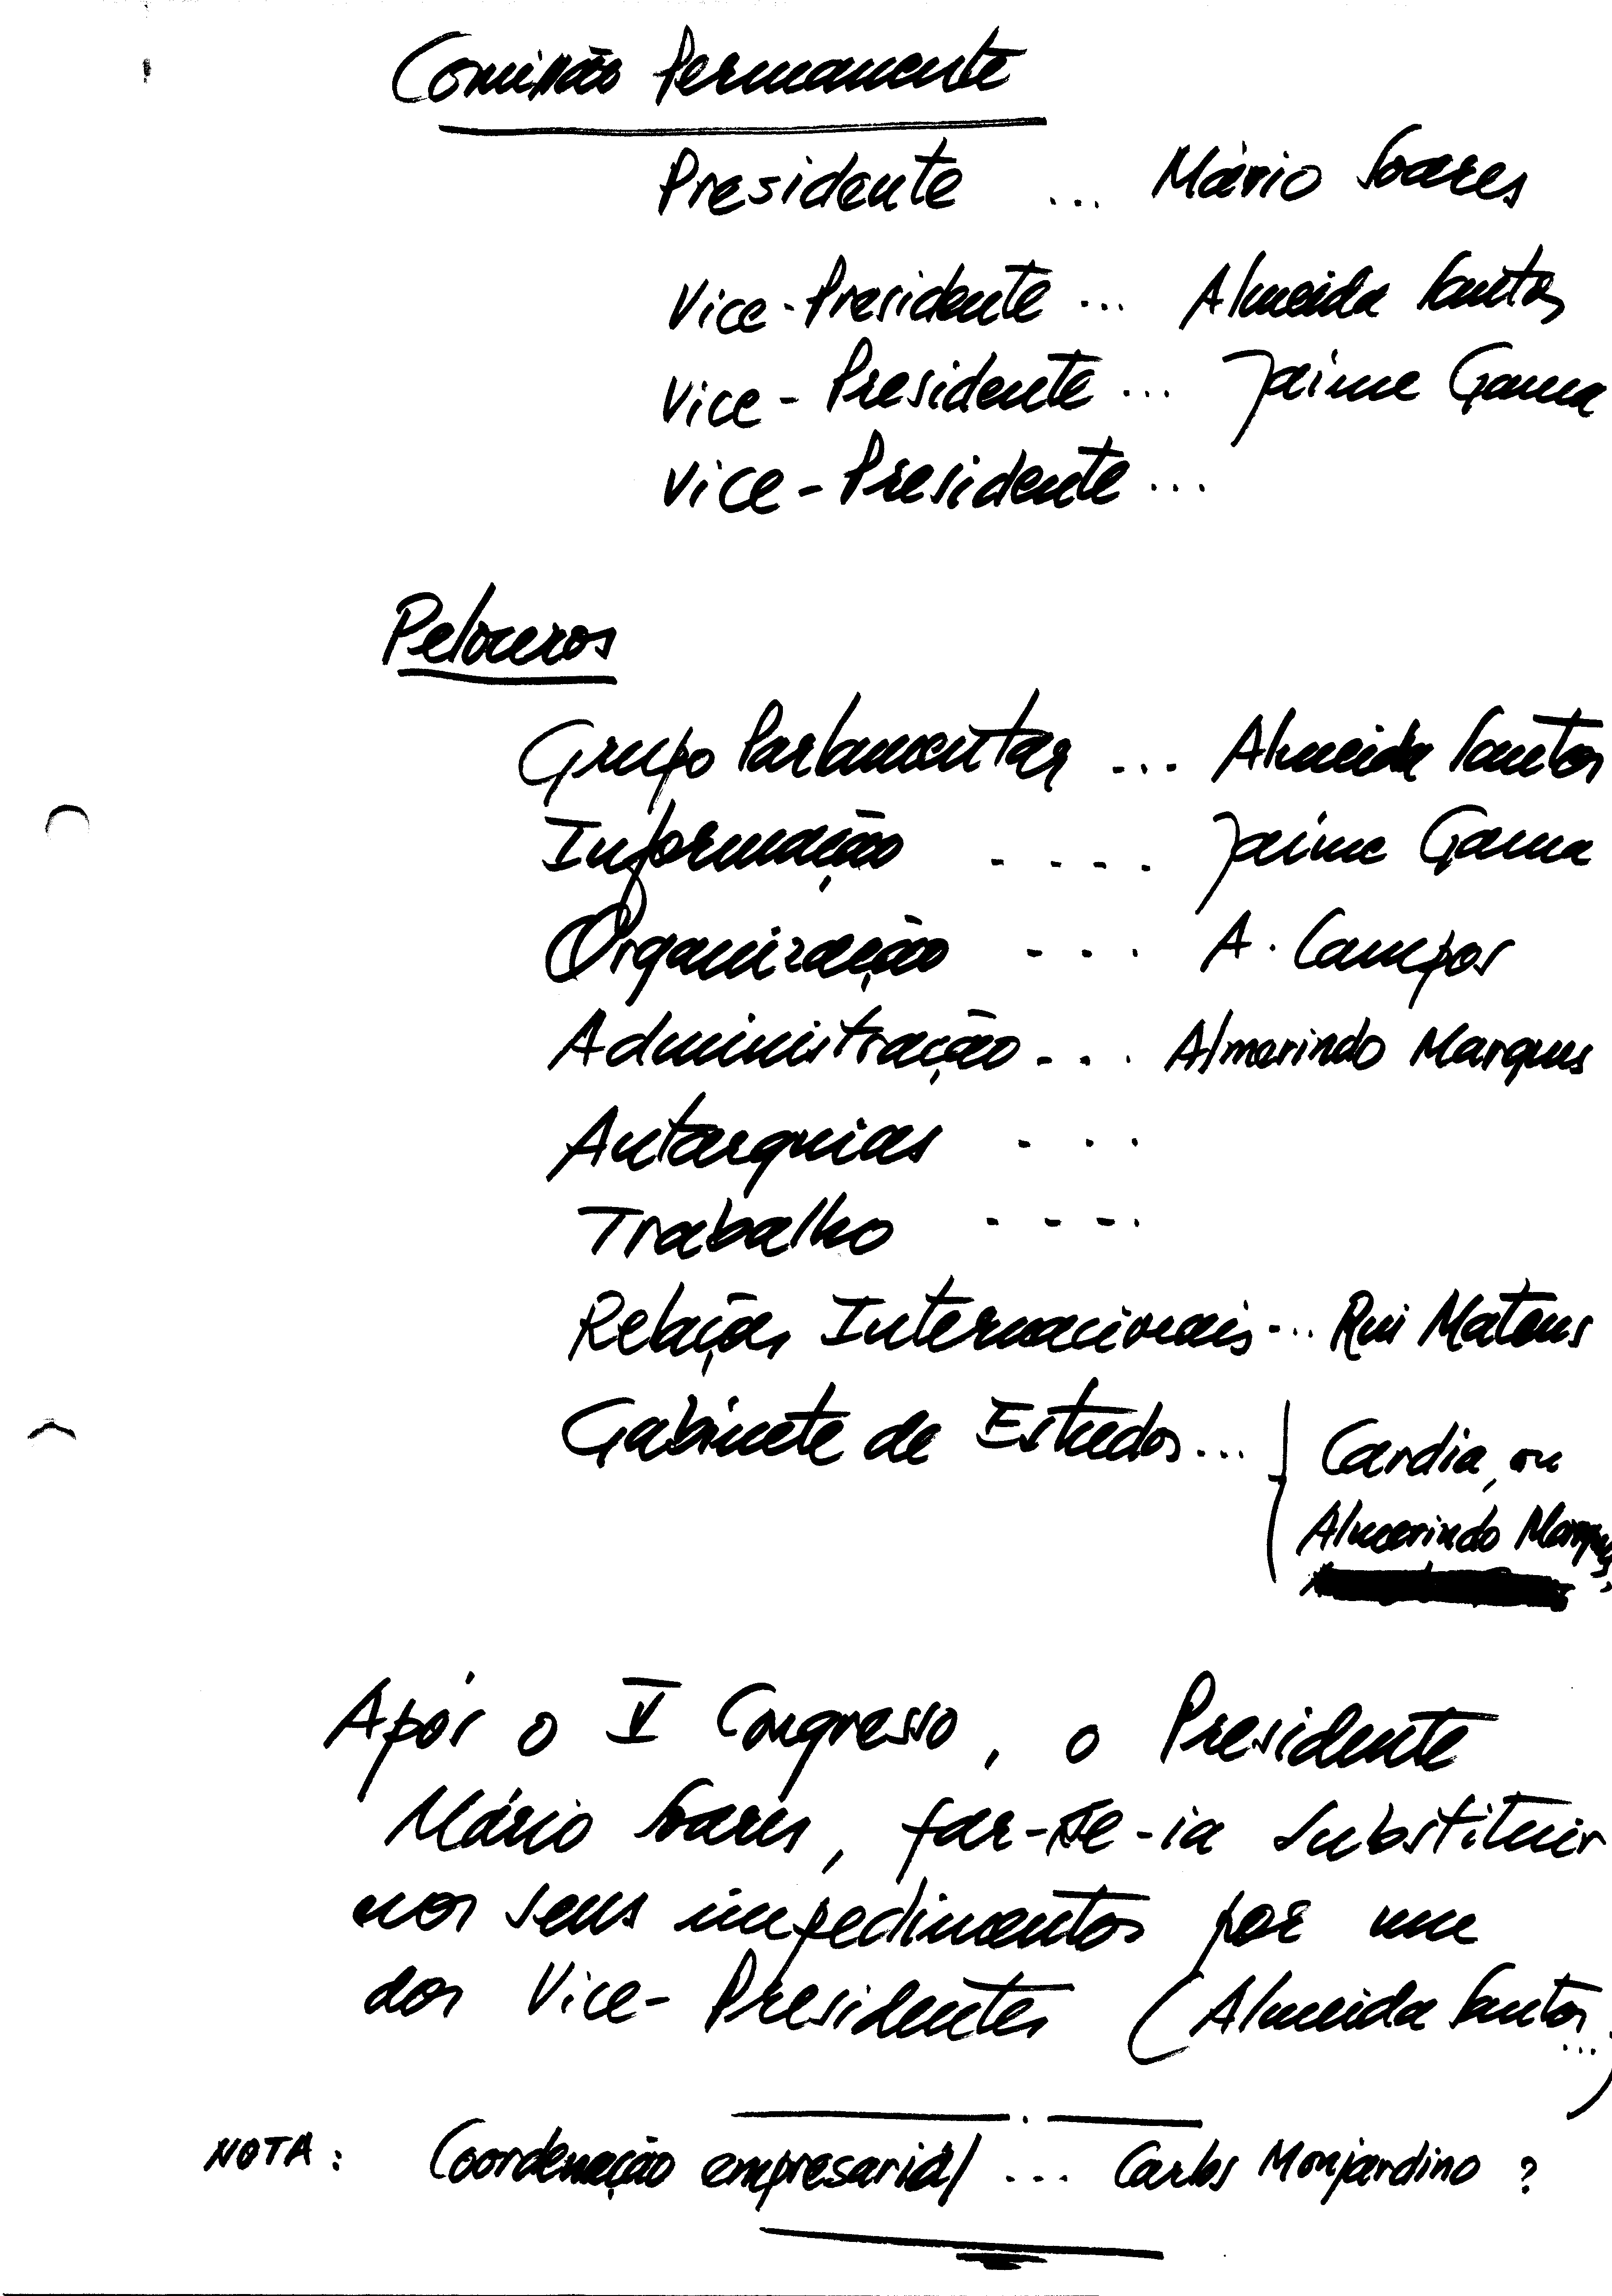 Comissão Permanente
Presidente ... Mário Soares
Vice-Presidente ... Almeida Santos
Vice-Presidente ... Jaime Gama
Vice-Presidente ...
Pelouros
Grupo Parlamentar ... Almeida Santos
Informação .... Jaime Gama
Organização ... A. Campos
Administração ... Almerindo Marques
Autarquias ...
Trabalho ....
Relações Internacionais ... Rui Mateus
Gabinete de Estudos ... Cardia, ou
Almerindo Marques,
Após o V Congresso, o Presidente
Mário Soares, far-se-ia substituir
nos seus impedimentos por um
dos Vice-Presidentes (Almeida Santos ...)
NOTA: Coordenação empresarial ... Carlos Monjardino ?